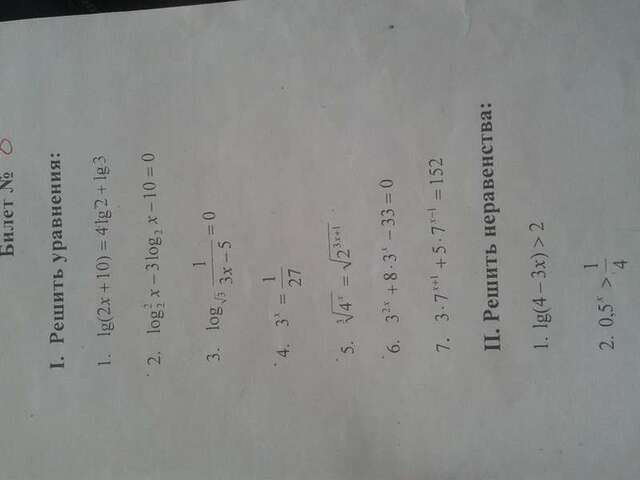 Билет № 8
I. Решить уравнения:
1. lg(2x+10)=4lg2+lg3
2. log₂²x−3log₂x−10=0
3. log_√3 1/(3x−5)=0
4. 3ˣ=1/27
5. ∛4ˣ=√2³ˣ⁺¹
6. 3²ˣ+8·3ˣ−33=0
7. 3·7ˣ⁺¹+5·7ˣ⁻¹=152
II. Решить неравенства:
1. lg(4−3x)>2
2. 0,5ˣ>1/4